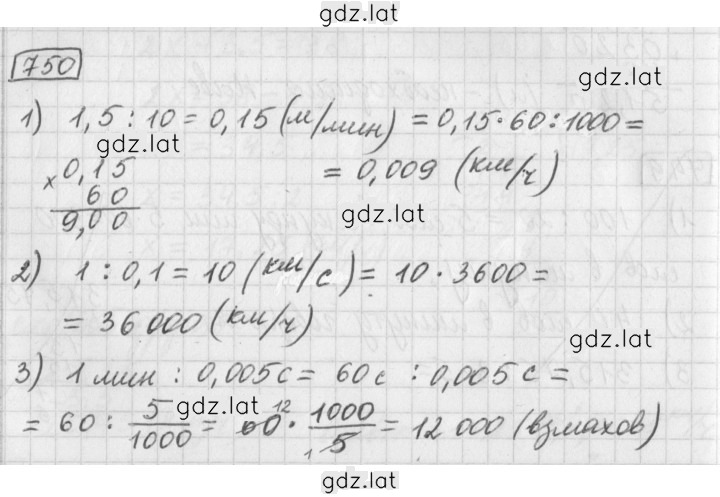 gdz.lat
750
gdz.lat
1) 1,5 : 10 = 0,15 (м/мин) = 0,15 · 60 : 1000 =
gdz.lat
× 0,15
60
9,00
= 0,009 (км/ч)
gdz.lat
2) 1 : 0,1 = 10 (км/с) = 10 · 3600 =
= 36 000 (км/ч)
gdz.lat
3) 1 мин : 0,005 с = 60 с : 0,005 с =
gdz.lat
= 60 : 5/1000 = 60 12 · 1000/5 1 = 12 000 (взмахов)
gdz.lat